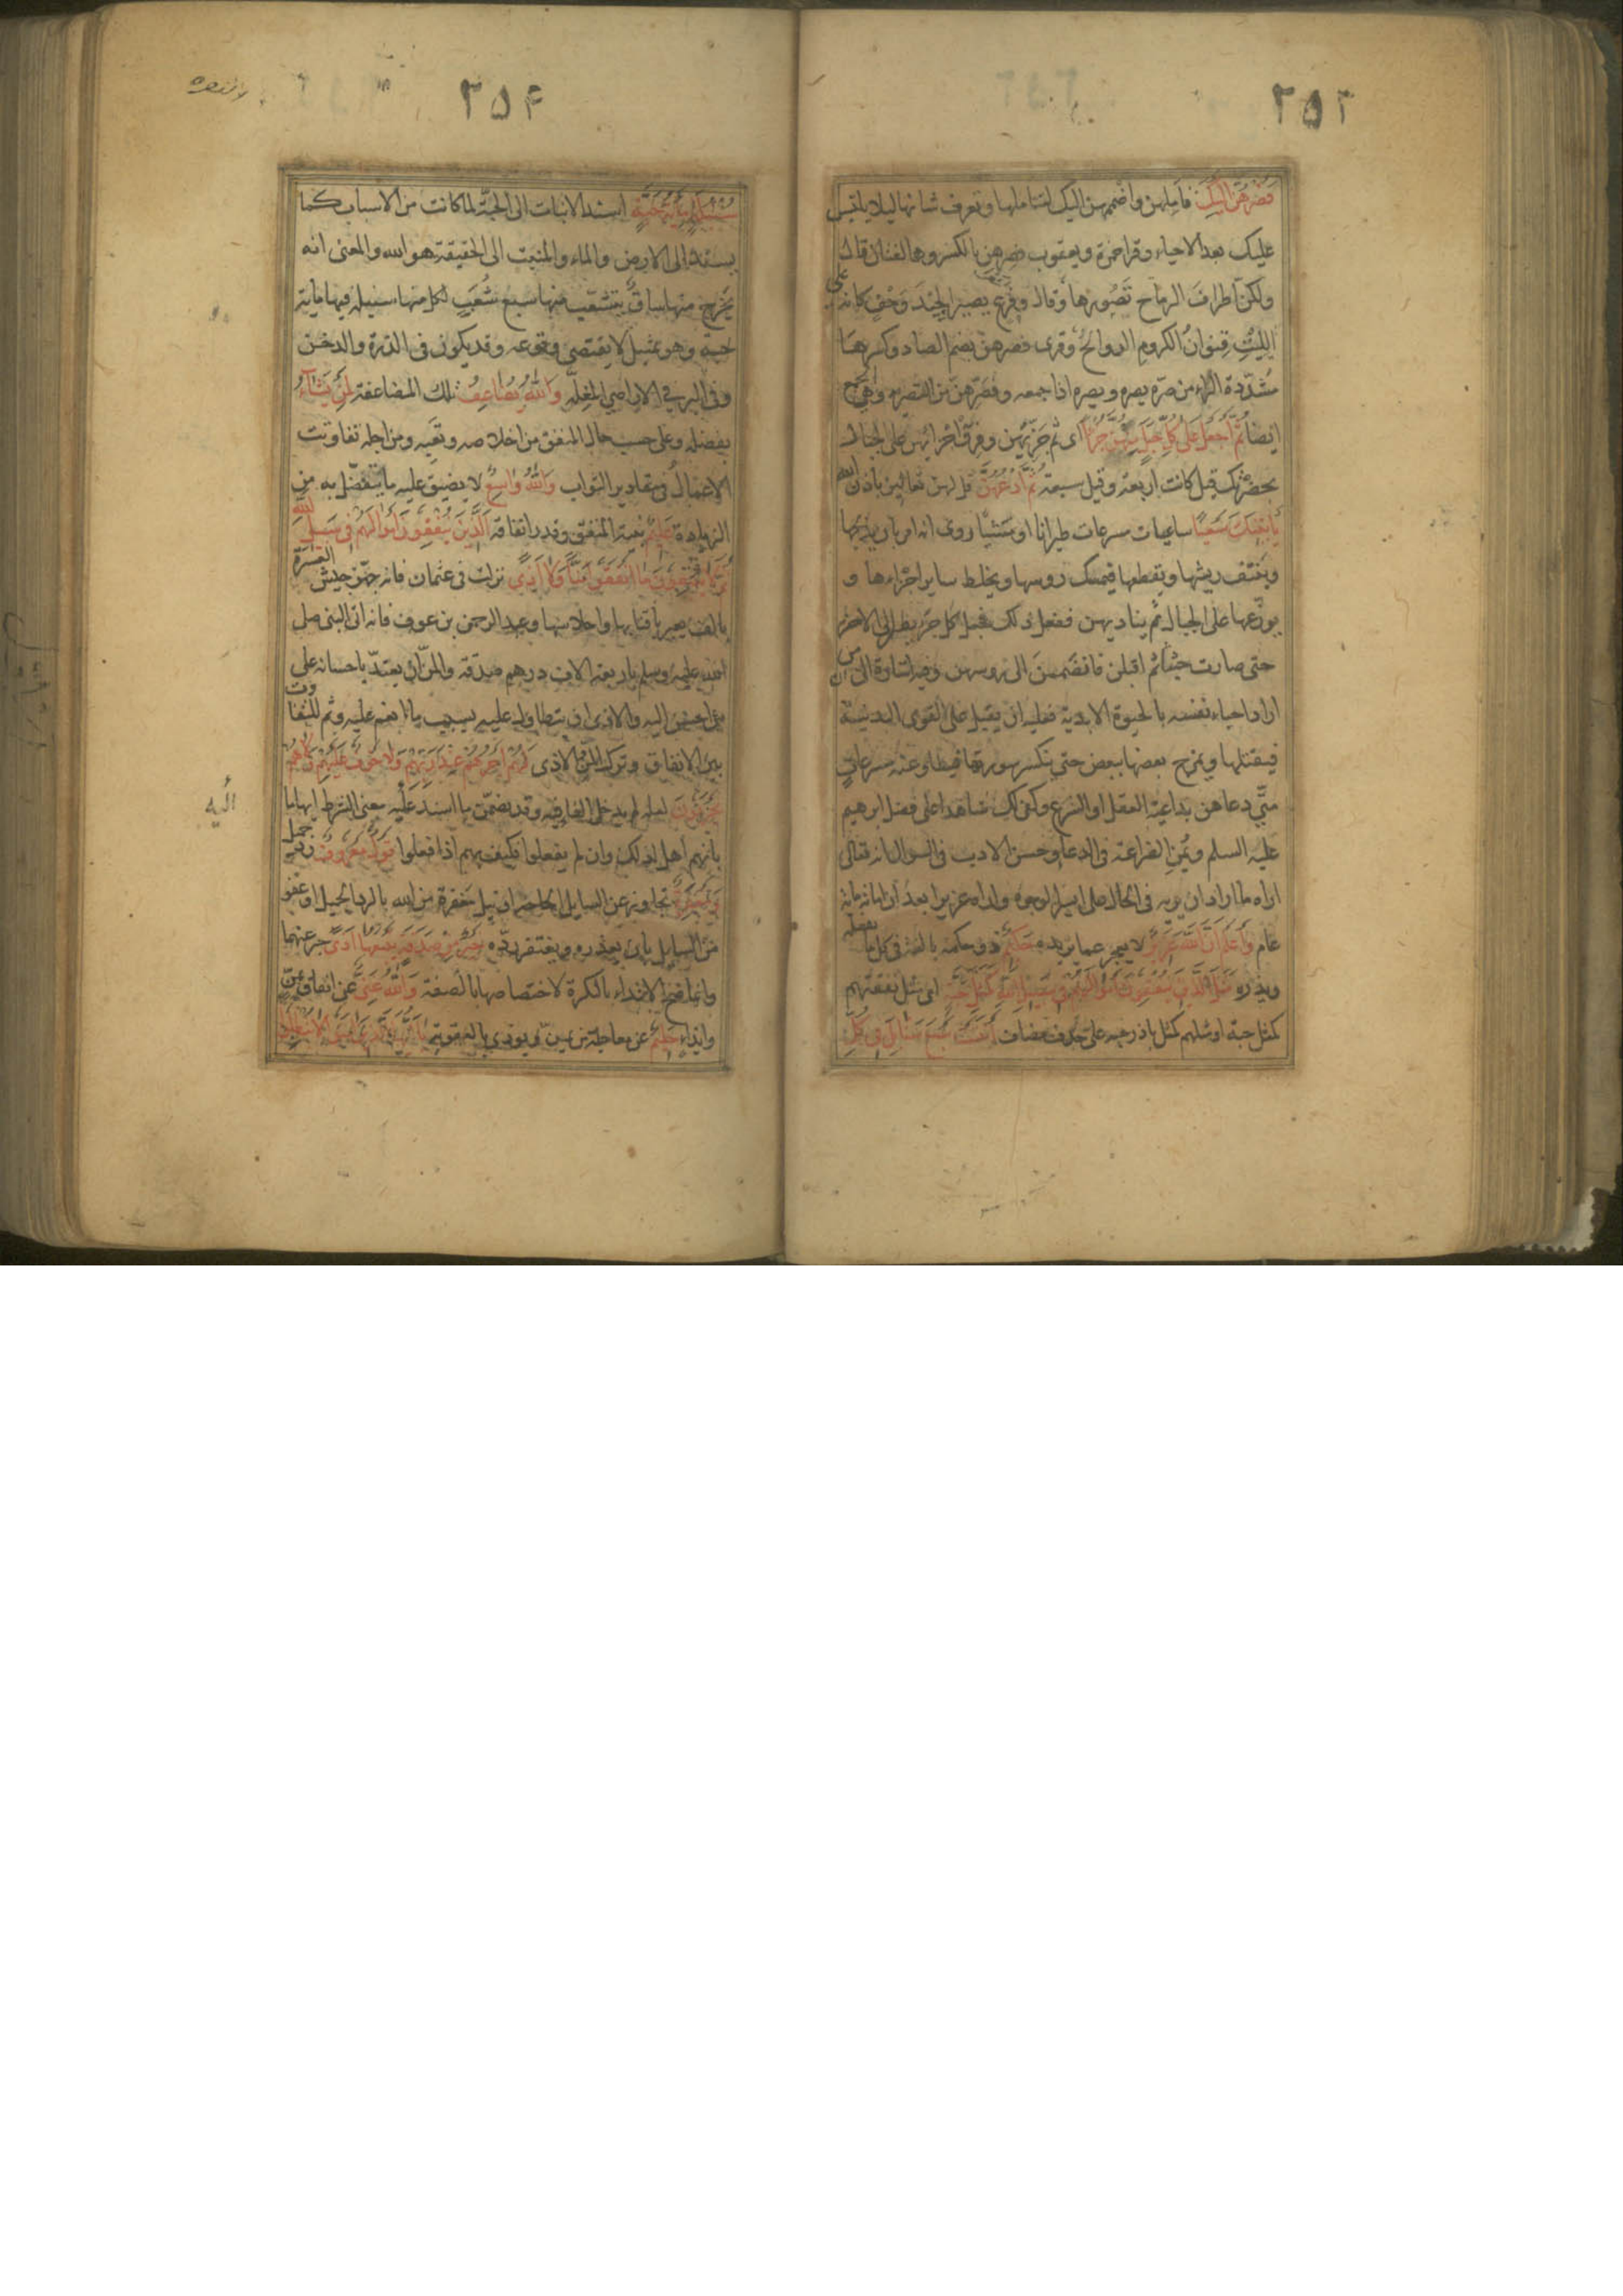 ٢٥٣
فَصُرْهُنَّ اِلَيْكَ فاَمِلهن واضممهن اليك لتتاملها وتعرف شانها ليلا يلتبس
عليك بعد الاحياء وقرا حمزة ويعقوب فصرهن بالكسر وهما لغتان قال
ولكنّ اطرافَ الرماح تَصُورها وقال وفرع يصير الجِيْدَ وَحْفٍ كانه على
اللِّيْتِ قِنوانُ الكروم الدوالح وقرى فصرهن بضم الصاد وكسرها
مُشدّدة الراء من صرّه يصره ويصره اذا جمعه وفصَرّهنّ من التصرية وهي الجمع
ايضا ثُمَّ اجْعَلْ عَلى كُلِّ جَبَلٍ مِنْهُنَّ جُزْءًا اى ثم جَزِّئهن وفرق اجزائهن على الجبال التى
بحضرتك قيل كانت اربعة وقيل سبعة ثُمَّ ادْعُهُنَّ قل لهن تعالين باذن الله
يَأْتِيْنَكَ سَعْيًا ساعيات مسرعات طيرانا او مَشيًا روى انه امر بان يذبحها
وينتف ريشها ويقطعها فيمسك روسها ويخلط ساير اجزاءها و
يوزّعها على الجبال ثم يناديهن ففعل ذلك فجعل كل جزء يطير الى الاخر
حتى صارت جثثا ثم اقبلن فانضممنَ الى روسهن وفيه اشارة الى ان من
اراد احياء نفسه بالحيوة الابدية فعليه ان يقبل على القوى البدنية
فيقتلها ويمزج بعضها ببعض حتى ينكسر سورتها فيطاوعنه مسرعات
متى دعاهن بداعية العقل او الشرع وكفى لك شاهدا على فضل ابرهيم
عليه السلم ويُمْنِ الضراعة فى الدعا وحسن الادب فى السوال انه تعالى
اراه ما اراد ان يريه فى الحال على ايسر الوجوه واراه عزيرا بعد ان اماته ماية
عام وَاعْلَمْ اَنَّ اللّٰهَ عَزِيْزٌ لا يعجز عما يريده حَكِيْمٌ ذو حكمة بالغة فى كل ما يفعله
ويذره مَثَلُ الَّذِيْنَ يُنْفِقُوْنَ اَمْوَالَهُمْ فِى سَبِيْلِ اللّٰهِ كَمَثَلِ حَبَّةٍ اى مثل نفقتهم
كمثل حبة او مثلهم كمثل باذر حبه على حذف مضاف اَنْبَتَتْ سَبْعَ سَنَابِلَ فِى كُلِّ
٢٥۴
سُنْبُلَةٍ مِائَةُ حَبَّةٍ اسند الانبات الى الحبّة لما كانت من الاسباب كما
يسند الى الارض والماء والمنبت الى الحقيقة هو الله والمعنى انه
يخرج منها ساقٌ يتشعّب منها سبع شُعَبٍ لكل منها سنبلة فيها ماية
حبة وهو تمثيل لا يقتضى وقوعه وقد يكون فى الذرة والدخن
وفى البر فى الاراضى المغلة وَاللّٰهُ يُضَاعِفُ تلك المضاعفة لِمَنْ يَشَآءُ
بفضله وعلى حسب حال المنفق من اخلاصه وتعَبِه ومن اجله تفاوتت
الاعمال فى مقادير الثواب وَاللّٰهُ وَاسِعٌ لا يضيق عليه ما يتفضّل به من
الزيادة عَلِيْمٌ بنية المنفق وقدر انفاقه الَّذِيْنَ يُنْفِقُوْنَ اَمْوَالَهُمْ فِى سَبِيْلِ اللّٰهِ
ثُمَّ لَا يُتْبِعُوْنَ مَا اَنْفَقُوا مَنًّا وَلَا اَذًى نزلت فى عثمان فانه جهّز جيش العسرة
بالف بعير باقتابها واحلاسها وعبد الرحمن بن عوف فانه اتى النبى صلى
الله عليه وسلم باربعة الاف درهم صدقة والمنّ ان يعتدّ باحسانه على
من احسن اليه والاذى ان يتطاول عليه بسبب ما انعم عليه وثم للتفاوت
بين الانفاق وترك المنّ والاذى لَهُمْ اَجْرُهُمْ عِنْدَ رَبِّهِمْ وَلَا خَوْفٌ عَلَيْهِمْ وَلَا هُمْ
يَحْزَنُوْنَ لعله لم يدخل الفا فيه وقد تضمّن ما اسند عَلَيْه معنى الشرط ايهاما
اليه
بانهم اهل لذلك وان لم يفعلوا فكيف بهم اذا فعلوا قَوْلٌ مَعْرُوْفٌ ردّ جميل
وَمَغْفِرَةٌ تجاوز عن السايل الحاحه او نيل مغفرة من الله بالرد الجميل او عفو
من السايل بان يعذره ويغتفر ردّه خَيْرٌ مِنْ صَدَقَةٍ يَتْبَعُهَا اَذًى خبر عنهما
وانما صح الابتداء بالنكرة لاختصاصها بالصفة وَاللّٰهُ غَنِىٌّ عن انفاق بمنّ
وايذاء حَلِيْمٌ عن معاجلة من يمن ويوذى بالعقوبة يَا اَيُّهَا الَّذِيْنَ اٰمَنُوا لَا تُبْطِلُوا